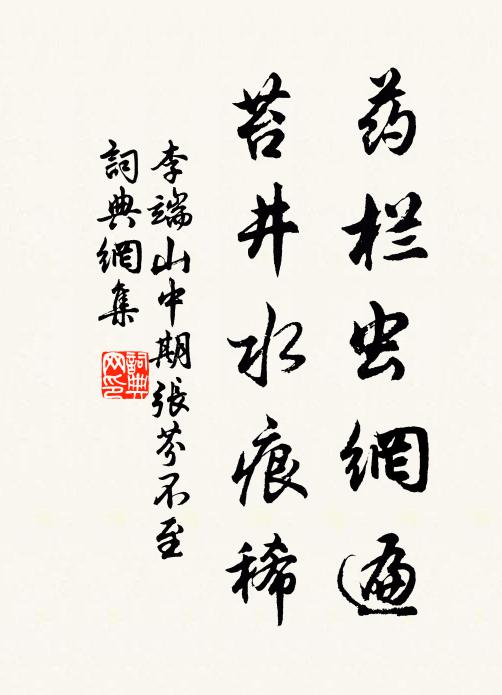 药栏虫網遍
苔井水痕稀
李端山中期張芬不至
詞典網集
詞典網印